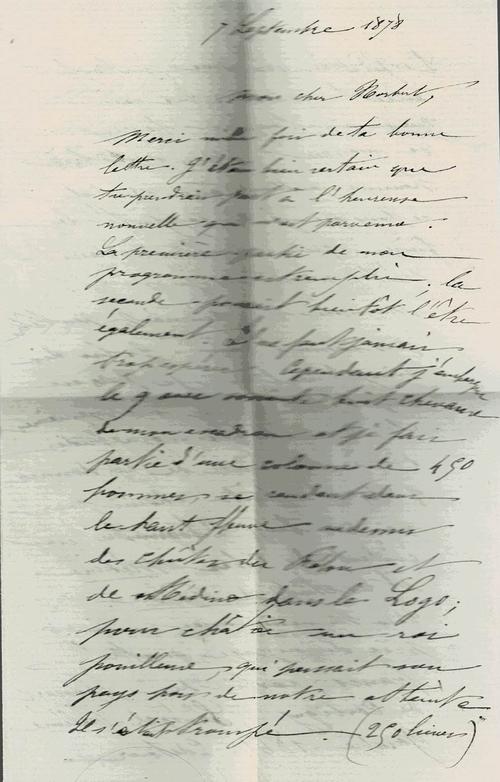 7 Septembre 1878
mon cher Norbert,
Merci mille fois de ta bonne
lettre. J'étais bien certain que
tu prendrais part à l'heureuse
nouvelle qui m'est parvenue.
La première partie de mon
programme est remplie, la
seconde pourrait bientôt l'être
également. Il ne faut jamais
trop espérer. Cependant j'embarque
le 9 avec huit chevaux
de mon escadron et je fais
partie d'une colonne de 450
hommes se rendant dans
le haut fleuve au dessus
des chûtes du Félou et
de Médine dans le Logo;
pour châtier un roi
pouilleux, qui pensait son
pays hors de notre atteinte
Il s'était trompé. (250 lieues)